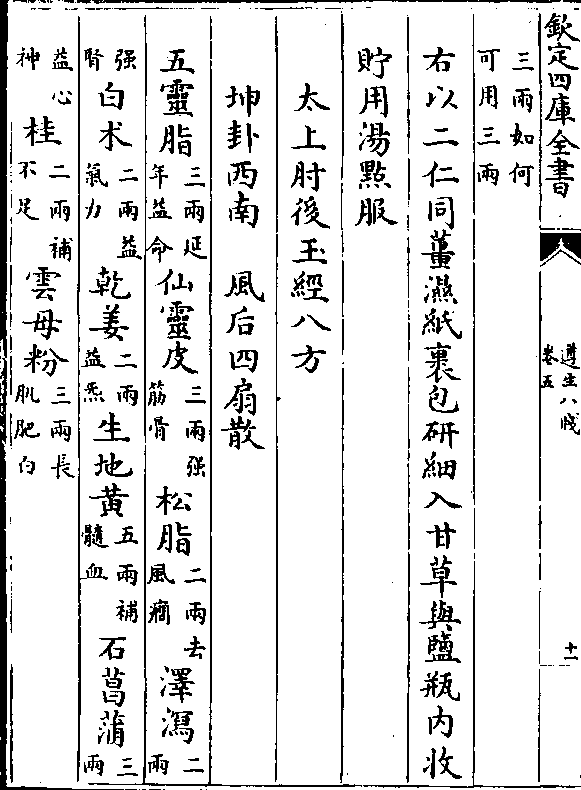 欽定四庫全書
遵生八牋
卷五
十一
三兩如何
可用三兩
右以二仁同薑濕紙裹包研細入甘草與鹽瓶内收
貯用湯㸃服
太上肘後玉經八方
坤卦西南　風后四扇散
五靈脂三兩延年益命仙靈皮三兩强筋骨松脂二兩去風癎澤瀉二兩
强腎白术二兩益氣力乾姜二兩益炁生地黄五兩補髓血石菖蒲三兩
益心神桂二兩補不足雲母粉三兩長肌肥白